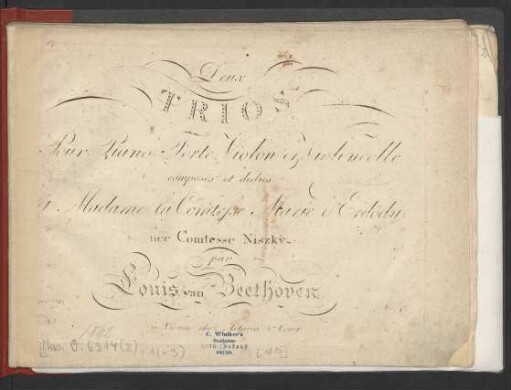 Deux
TRIOS
Pour Piano-Forte, Violon et Violoncelle
composés et dediés
à Madame la Comtesse Marie d'Erdödy
née Comtesse Niszky
par
Louis van Beethoven
chez Artaria